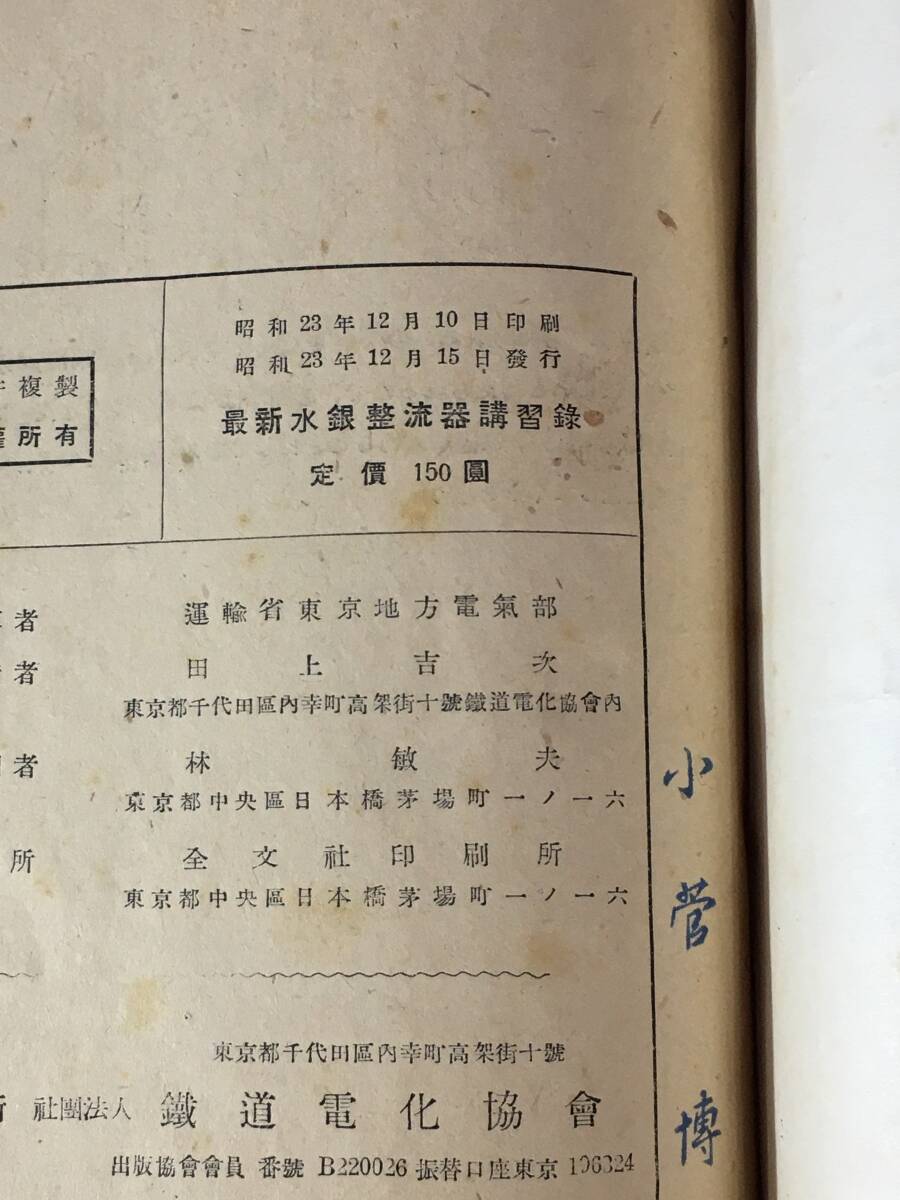 昭和23年12月10日印刷
昭和23年12月15日發行
最新水銀整流器講習錄
定價 150圓
複製
所有
者 運輸省東京地方電氣部
者 田上吉次
東京都千代田區內幸町高架街十號鐵道電化協會內
者 林敏夫
東京都中央區日本橋茅場町一ノ一六
所 全文社印刷所
東京都中央區日本橋茅場町一ノ一六
東京都千代田區內幸町高架街十號
社團法人 鐵道電化協會
出版協會會員 番號 B220026 振替口座東京 106324
小菅博